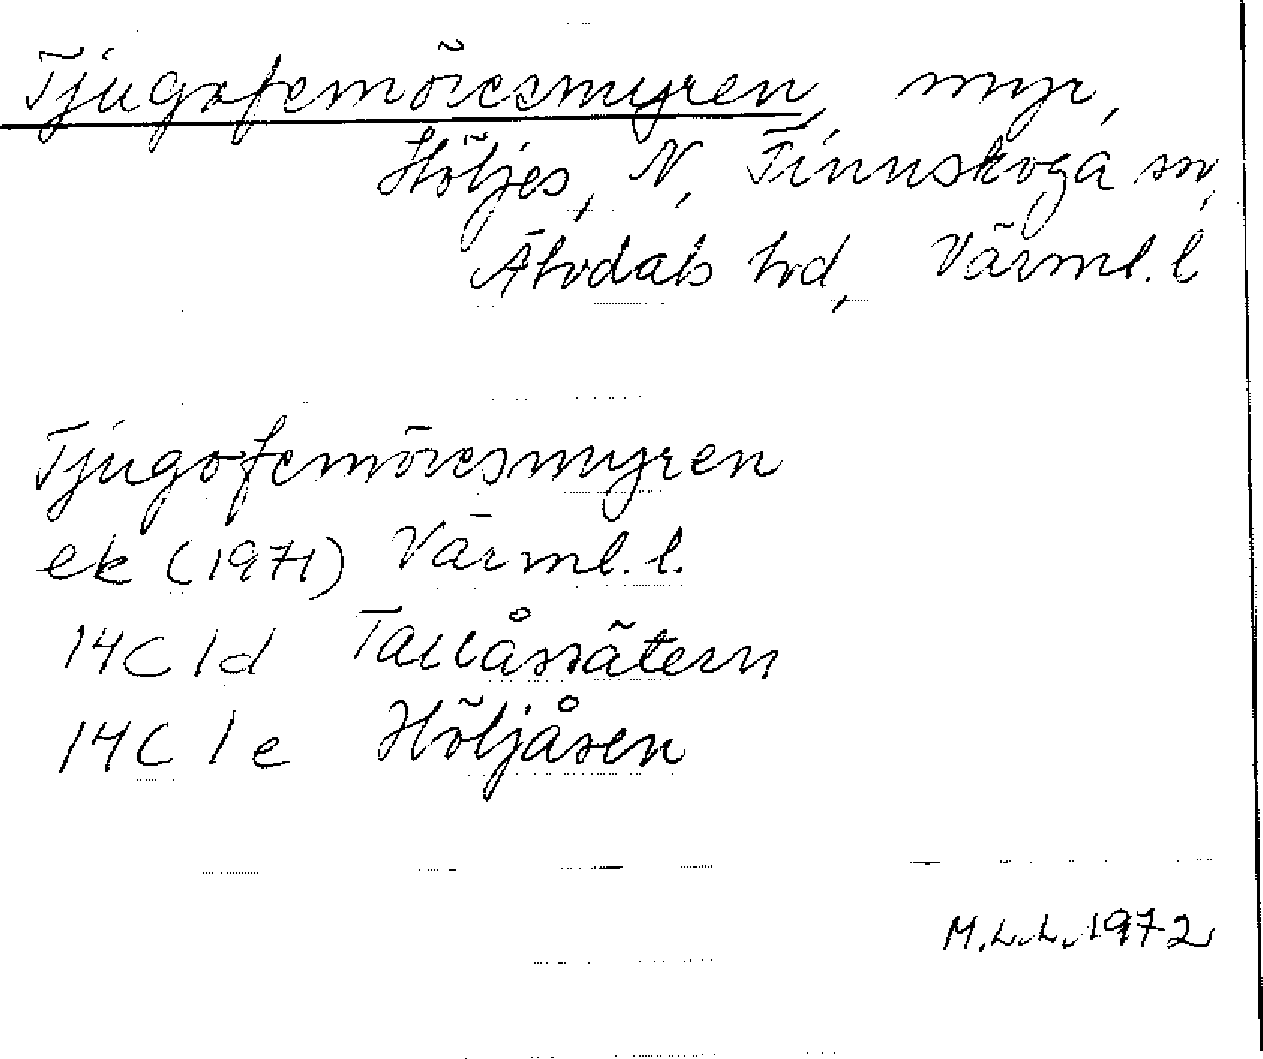 Tjugofemöresmyren, myr,
Höljes, N, Finnskoga sn,
Älvdals hd, Värml. l
Tjugofemöresmyren
ek (1971) Värml. l.
14C 1d Tallåssätern
14C 1e Höljåsen
M.L.L. 1972